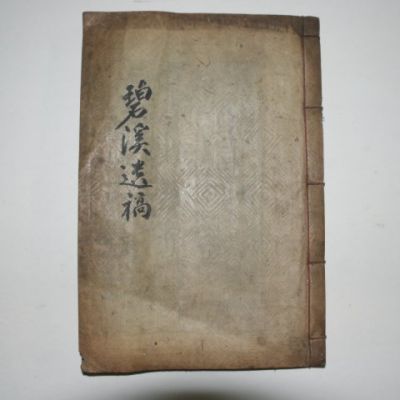 碧溪遺稿